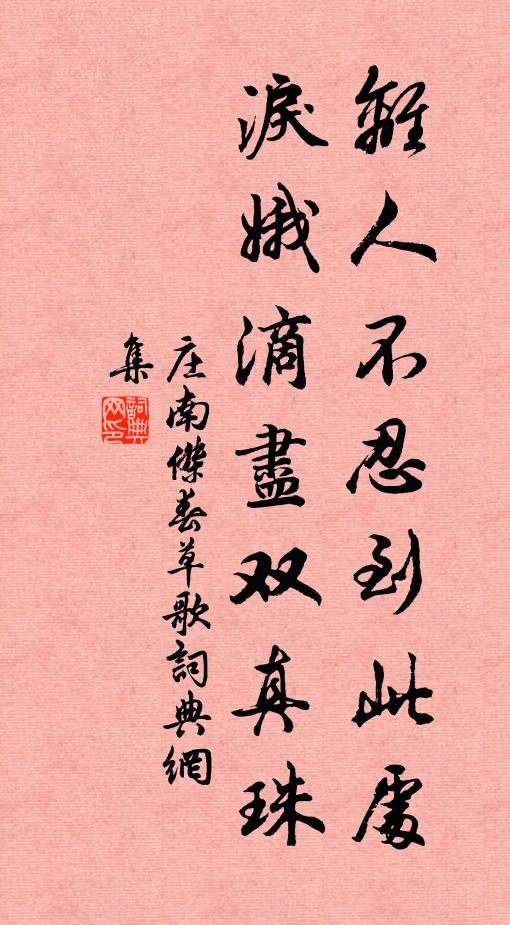 離人不忍到此處
淚娥滴盡双真珠
庄南傑春草歌詞典網
集
詞典
网印